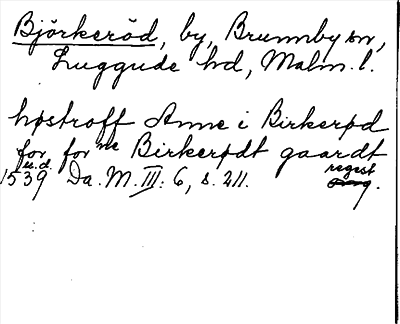 Björkeröd, by, Brunnby sn,
Luggude hd, Malm. l.
høstroff Anne i Birkerød
for for ne Birkerødt gaardt
u.d.
1539 Da. M. III: 6, s. 211. regest